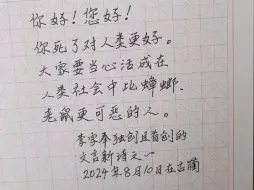 你好！您好！
你死了对人类更好。
大家要当心活成在
人类社会中比蟑螂、
老鼠更可恶的人。
李字奉独创且首创的
文言新诗之一
2024年8月10日在吉